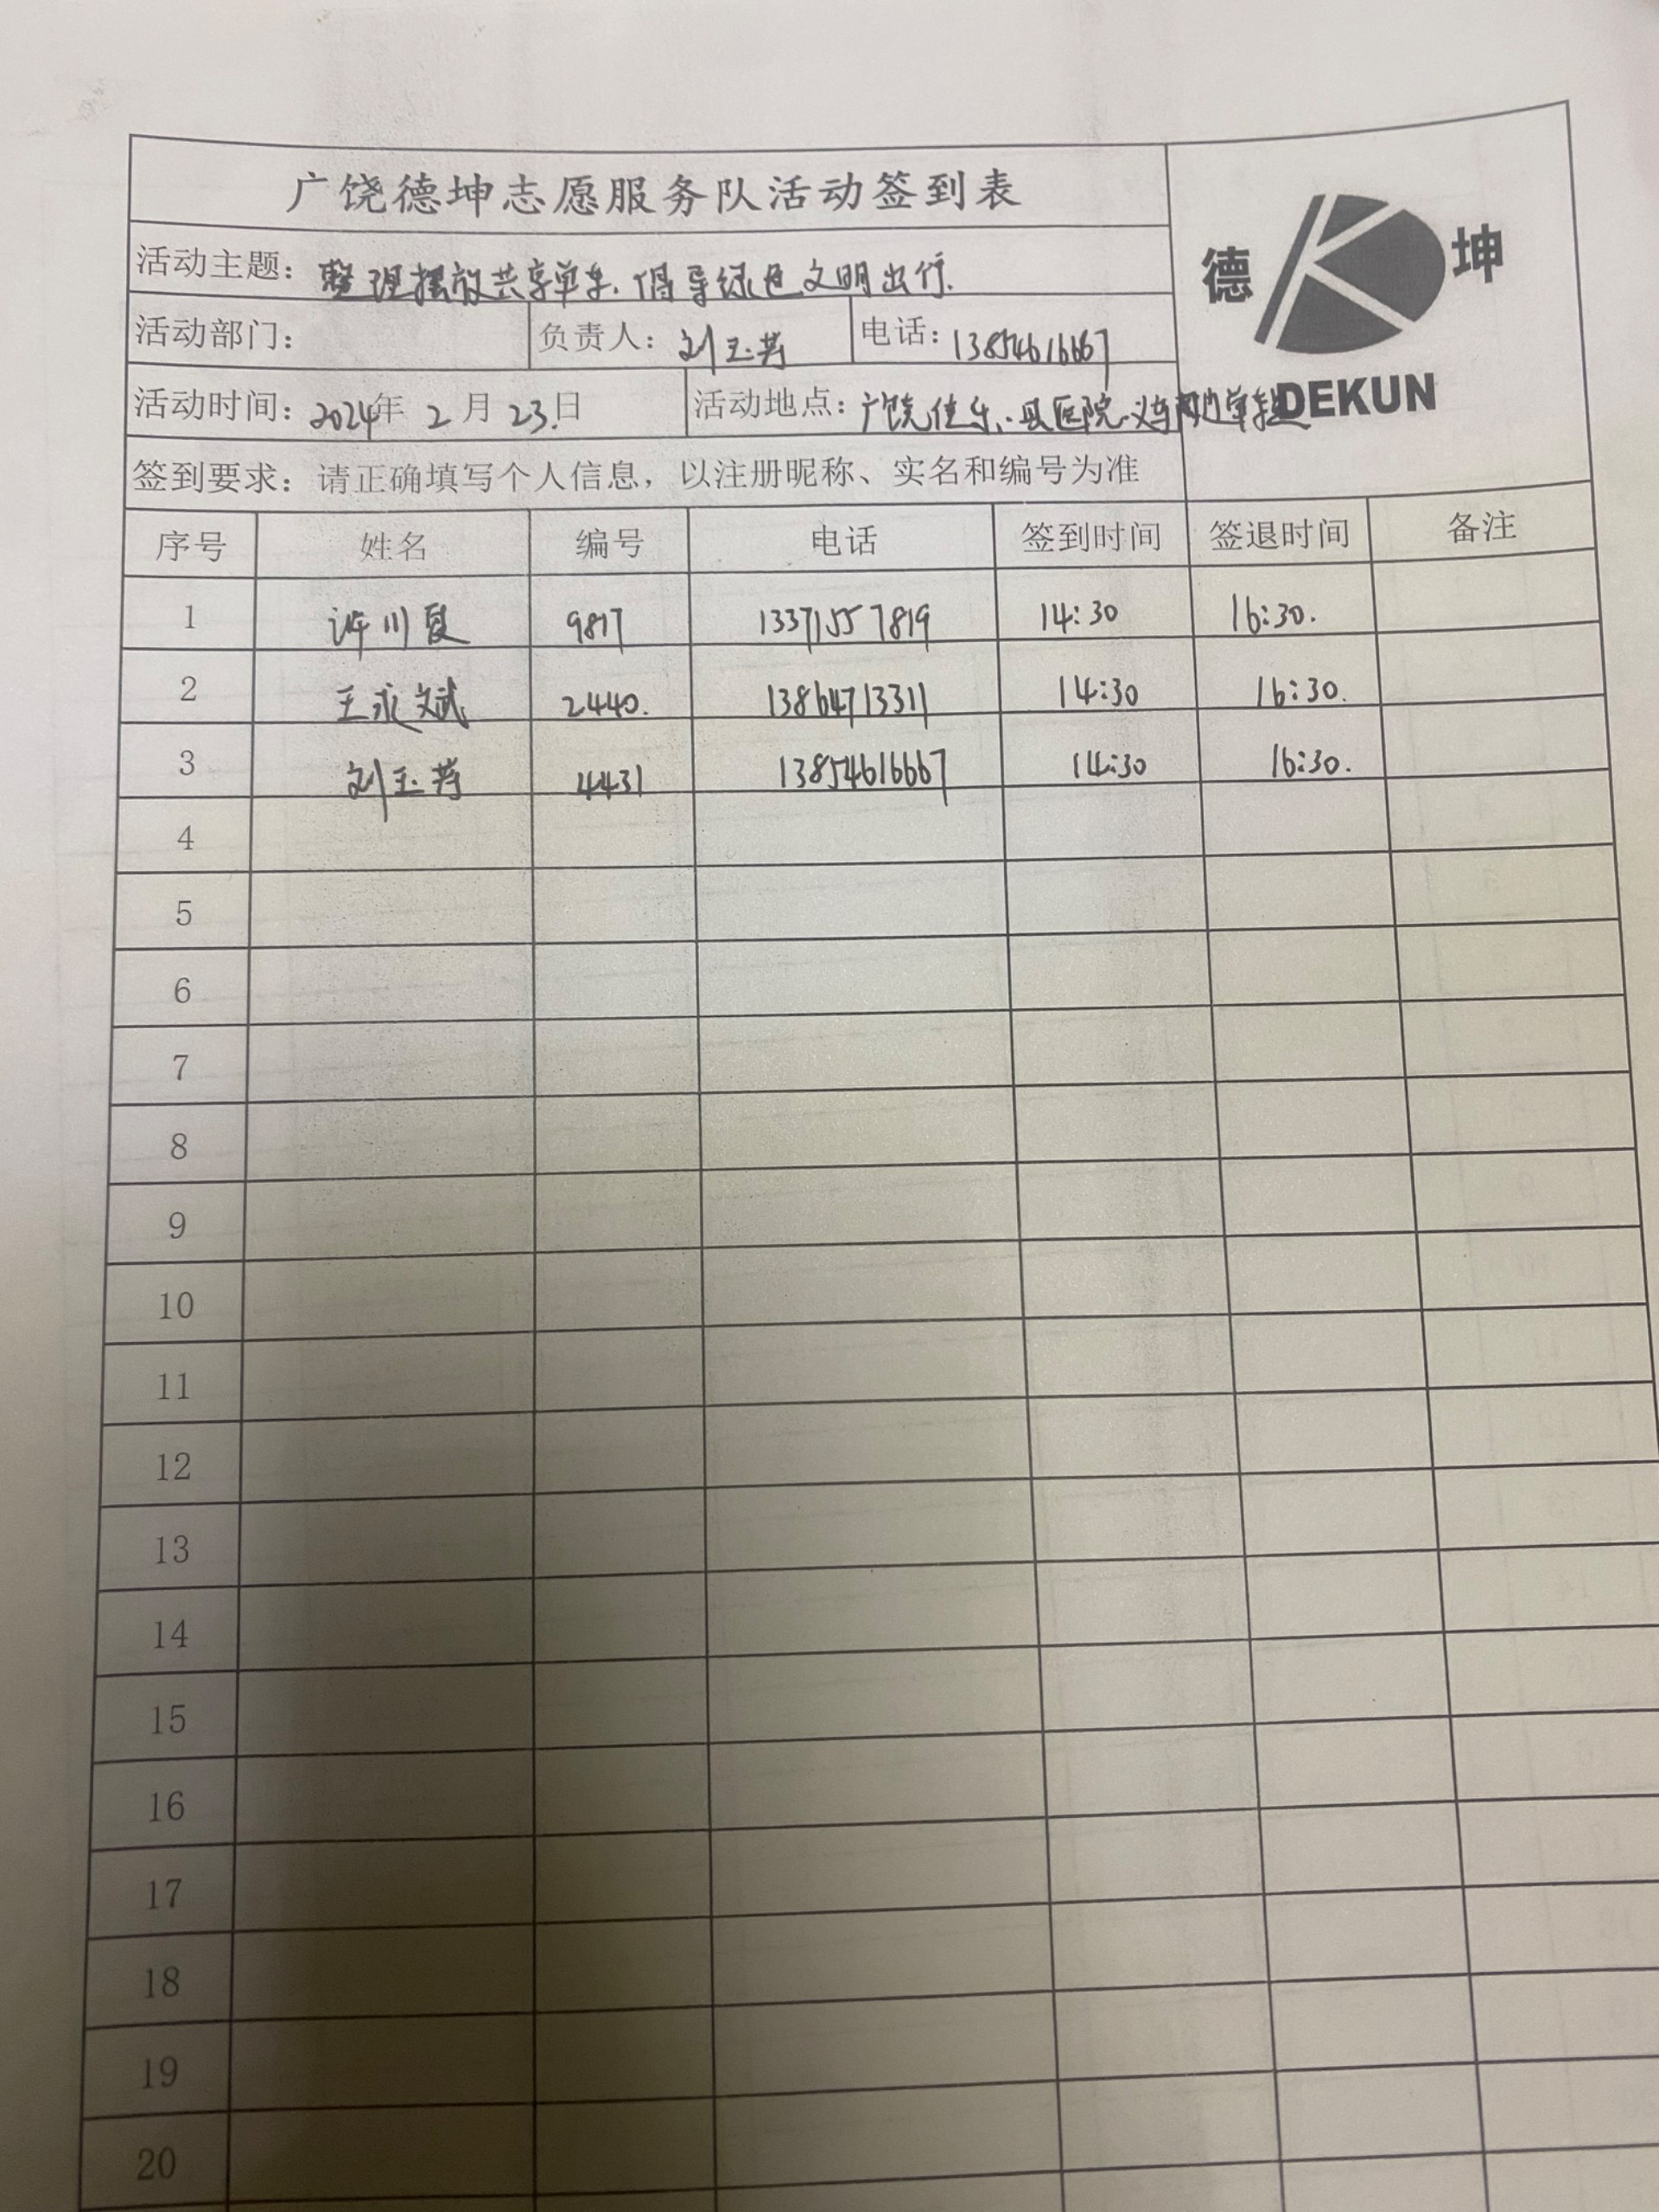 广饶德坤志愿服务队活动签到表
德 坤
DEKUN
活动主题：整理摆放共享单车.倡导绿色文明出行.
活动部门： 负责人：刘玉芳 电话：13854616667
活动时间：2024年 2月 23.日 活动地点：广饶佳乐、县医院
签到要求：请正确填写个人信息，以注册昵称、实名和编号为准
序号 姓名 编号 电话 签到时间 签退时间 备注
1 许川 9817 13371557819 14:30 16:30.
2 王永斌 2440. 13864713311 14:30 16:30.
3 刘玉芳 4431 13854616667 14:30 16:30.
4
5
6
7
8
9
10
11
12
13
14
15
16
17
18
19
20